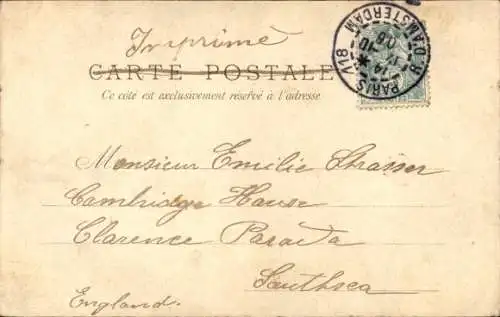 Imprimé
CARTE POSTALE
Ce côté est exclusivement réservé à l'adresse
PARIS 118
R. D'AMSTERDAM
Monsieur Emilie Strasser
Cambridge House
Clarence Parada
Southsea
England.